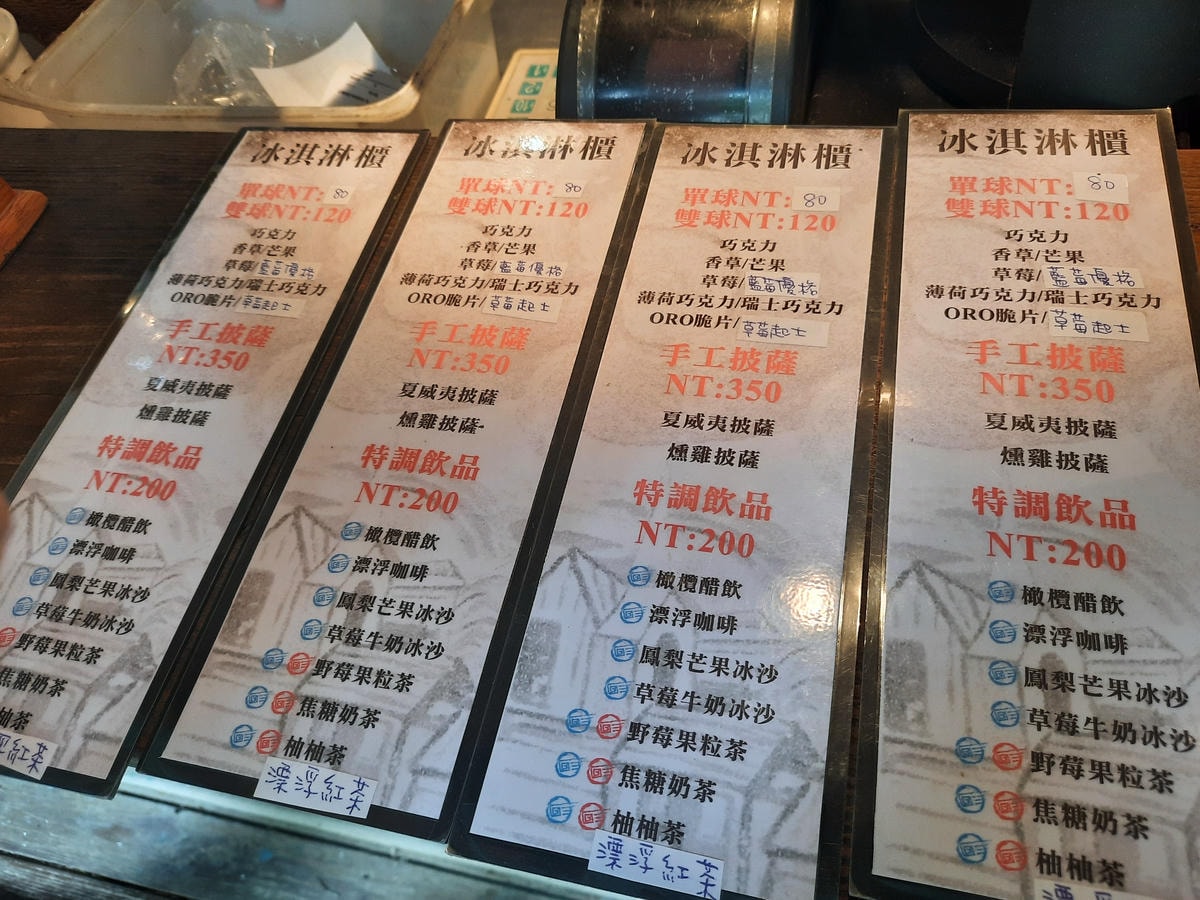 冰淇淋櫃
單球NT: 80
雙球NT:120
巧克力
香草/芒果
草莓/藍莓優格
薄荷巧克力/瑞士巧克力
ORO脆片/草莓起士
手工披薩
NT:350
夏威夷披薩
燻雞披薩
特調飲品
NT:200
橄欖醋飲
漂浮咖啡
鳳梨芒果冰沙
草莓牛奶冰沙
野莓果粒茶
焦糖奶茶
柚茶
紅茶
冰淇淋櫃
單球NT: 80
雙球NT:120
巧克力
香草/芒果
草莓/藍莓優格
薄荷巧克力/瑞士巧克力
ORO脆片/草莓起士
手工披薩
NT:350
夏威夷披薩
燻雞披薩
特調飲品
NT:200
橄欖醋飲
漂浮咖啡
鳳梨芒果冰沙
草莓牛奶冰沙
野莓果粒茶
焦糖奶茶
柚柚茶
漂浮紅茶
冰淇淋櫃
單球NT: 80
雙球NT:120
巧克力
香草/芒果
草莓/藍莓優格
薄荷巧克力/瑞士巧克力
ORO脆片/草莓起士
手工披薩
NT:350
夏威夷披薩
燻雞披薩
特調飲品
NT:200
橄欖醋飲
漂浮咖啡
鳳梨芒果冰沙
草莓牛奶冰沙
野莓果粒茶
焦糖奶茶
柚柚茶
漂浮紅茶
冰淇淋櫃
單球NT: 80
雙球NT:120
巧克力
香草/芒果
草莓/藍莓優格
薄荷巧克力/瑞士巧克力
ORO脆片/草莓起士
手工披薩
NT:350
夏威夷披薩
燻雞披薩
特調飲品
NT:200
橄欖醋飲
漂浮咖啡
鳳梨芒果冰沙
草莓牛奶冰沙
野莓果粒茶
焦糖奶茶
柚柚茶